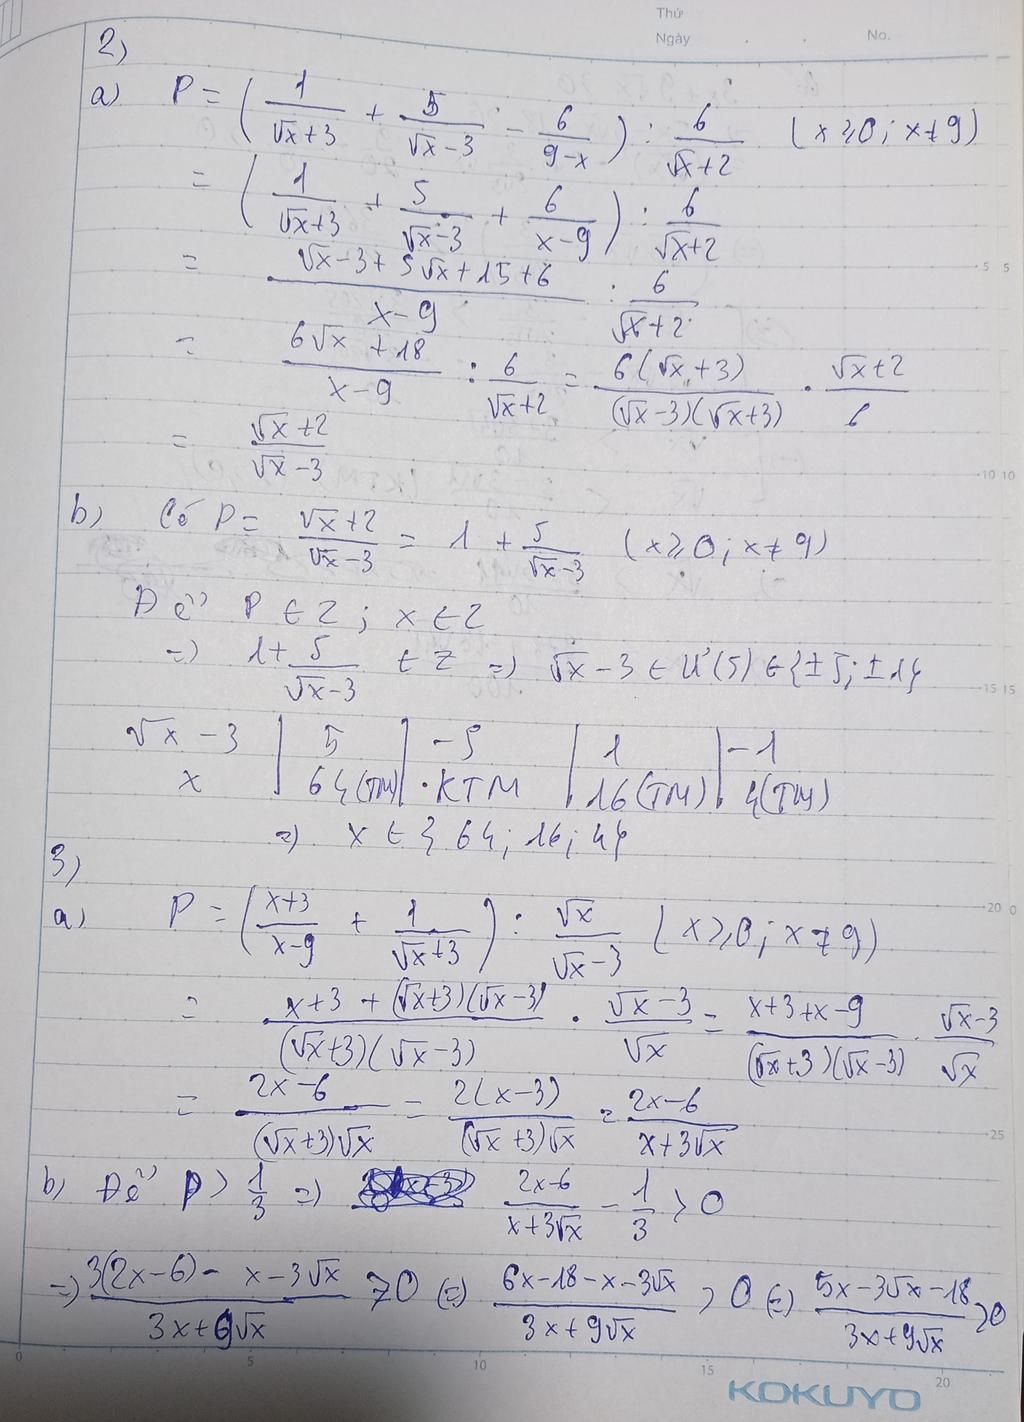 Thứ
Ngày . . No.
2)
a) P = (1/(√x+3) + 5/(√x-3) - 6/(9-x)) : 6/(√x+2) (x ≥ 0; x ≠ 9)
= (1/(√x+3) + 5/(√x-3) + 6/(x-9)) : 6/(√x+2)
= (√x-3+5√x+15+6)/(x-9) : 6/(√x+2)
= (6√x+18)/(x-9) : 6/(√x+2) = 6(√x+3)/((√x-3)(√x+3)) . (√x+2)/6
= (√x+2)/(√x-3)
b) Có P = (√x+2)/(√x-3) = 1 + 5/(√x-3) (x ≥ 0; x ≠ 9)
Để P ∈ Z; x ∈ Z
=> 1 + 5/(√x-3) ∈ Z => √x-3 ∈ Ư(5) ∈ {±5; ±1}
√x-3 | 5 | -5 | 1 | -1
x | 64(TM) | KTM | 16(TM) | 4(TM)
=> x ∈ {64; 16; 4}
3)
a) P = ((x+3)/(x-9) + 1/(√x+3)) : √x/(√x-3) (x ≥ 0; x ≠ 9)
= (x+3+(√x+3)(√x-3))/((√x+3)(√x-3)) . (√x-3)/√x = (x+3+x-9)/((√x+3)(√x-3)) . (√x-3)/√x
= (2x-6)/((√x+3)√x) = 2(x-3)/((√x+3)√x) = (2x-6)/(x+3√x)
b) Để P > 1/3 => (2x-6)/(x+3√x) - 1/3 > 0
=> (3(2x-6) - x-3√x)/(3x+9√x) > 0 (=) (6x-18-x-3√x)/(3x+9√x) > 0 (=) (5x-3√x-18)/(3x+9√x) > 0
5 5
10 10
15 15
20 0
25
0 5 10 15 20
KOKUYO